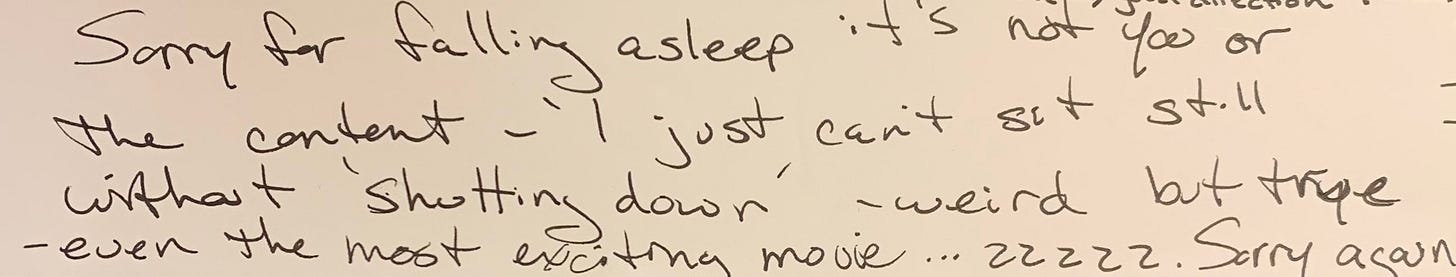 Sorry for falling asleep it's not you or
the content - I just can't sit still
without 'shutting down' - weird but true
- even the most exciting movie ... zzzzz. Sorry again